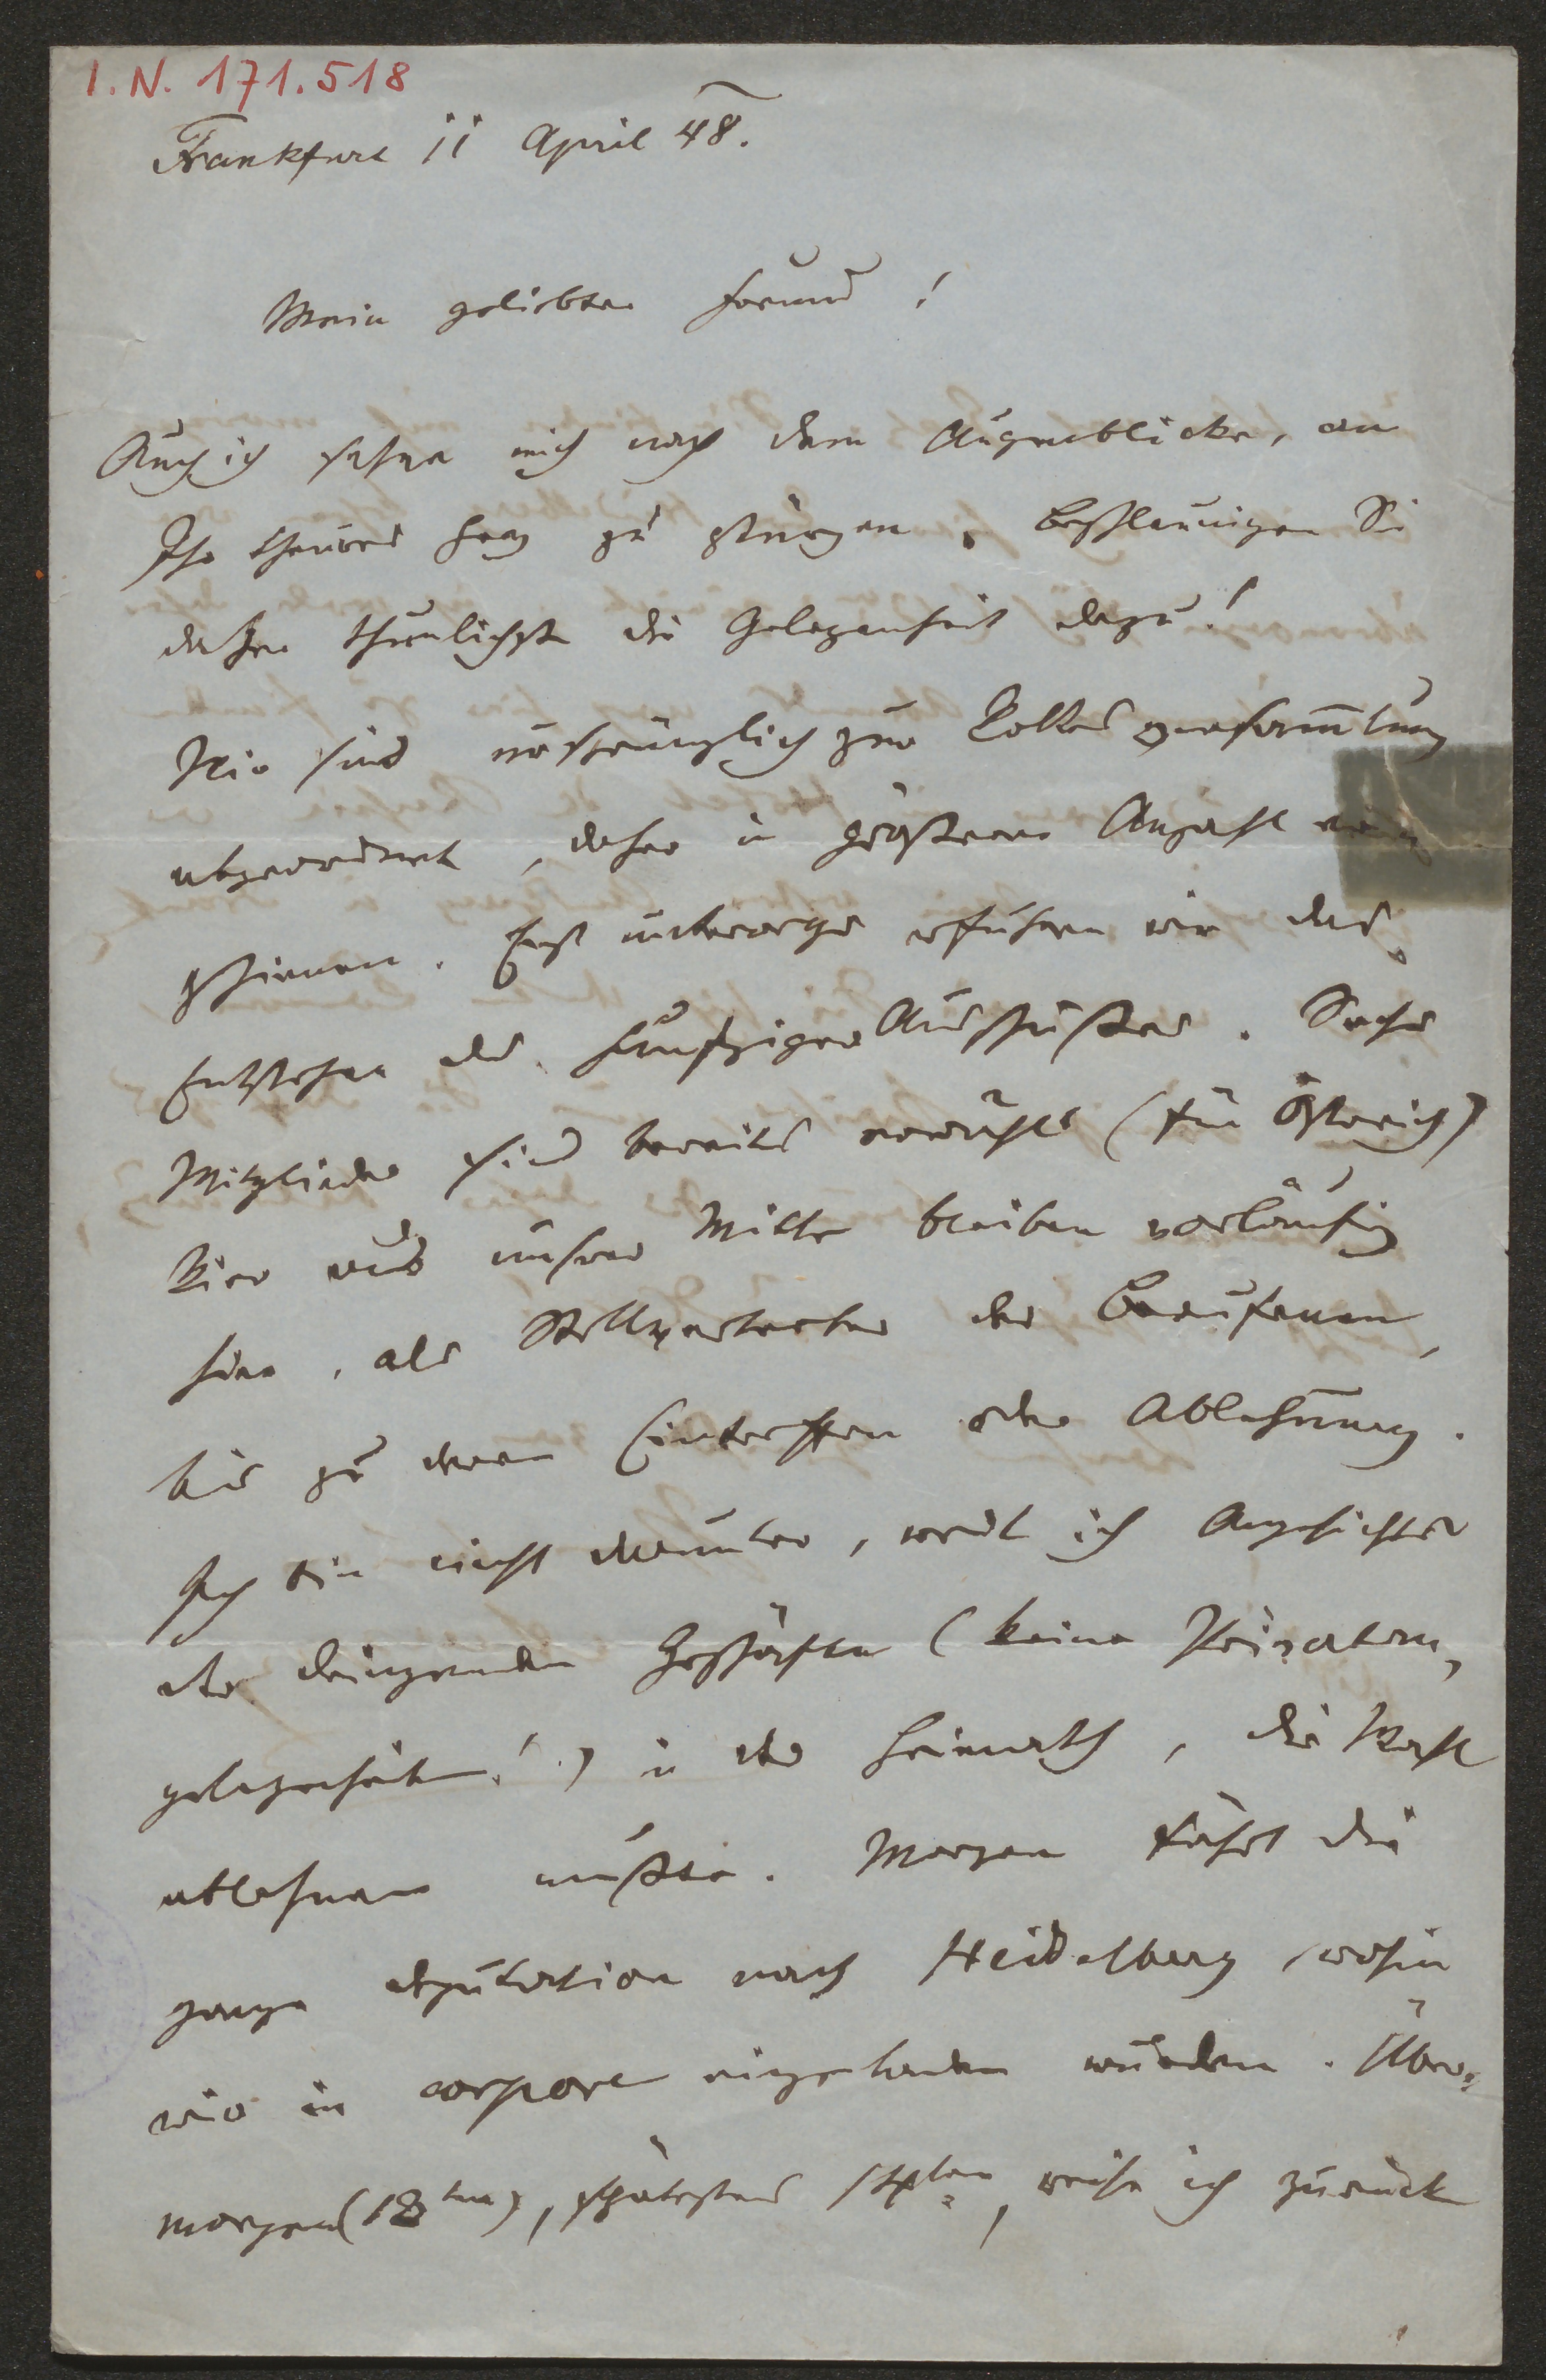 I.N. 171.518
Frankfurt 11 April 48.
Mein geliebter Freund!
Auch ich sehne mich nach dem Augenblicke, an
Ihr theures Herz zu stürzen. Beschleunigen Sie
daher thunlichst die Gelegenheit dazu!
Wir sind ursprünglich zur Volksversammlung
abgeordnet, daher in größerer Anzahl er¬
schienen. Erst unterwegs erfuhren wir das
Entstehen des Fünfziger Ausschußes. Sechs
Mitglieder sind bereits erwählt (für Östreich)
Vier aus unsrer Mitte bleiben vorläufig
hier, als Stellvertreter der Berufenen,
bis zu deren Eintreffen oder Ablehnung.
Ich bin nicht darunter, weil ich Angesichts
der dringenden Geschäfte (keine Privatan¬
gelegenheiten!) in der Heimath, die Wahl
ablehnen mußte. Morgen fährt die
ganze Deputation nach Heidelberg, wohin
wir in corpore eingeladen wurden. Über¬
morgen (13ten), spätestens 14ten, reise ich zurück